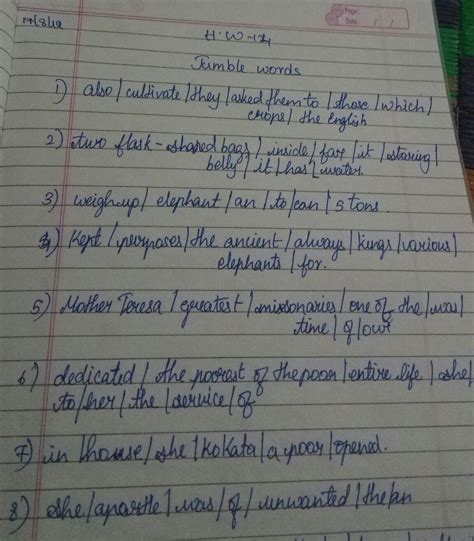 Page
Date / /
H.W-14
Jumble words
1) also / cultivate / they / asked them to / those / which /
crops / the English
2) two flask-shared bags / inside / for / it / storing /
belly / it / has / water.
3) weigh up / elephant / an / to / can / 5 tons.
4) Kept / purposes / the ancient / always / kings / various /
elephants / for.
5) Mother Teresa / greatest / missonaries / one of the / was /
time / of / our
6) dedicated / the poorest of the poor / entire life / she /
to / her / the / service / of
7) in / house / she / kokata / a poor / opened.
8) she / apartle / was / of / unwanted / the / an